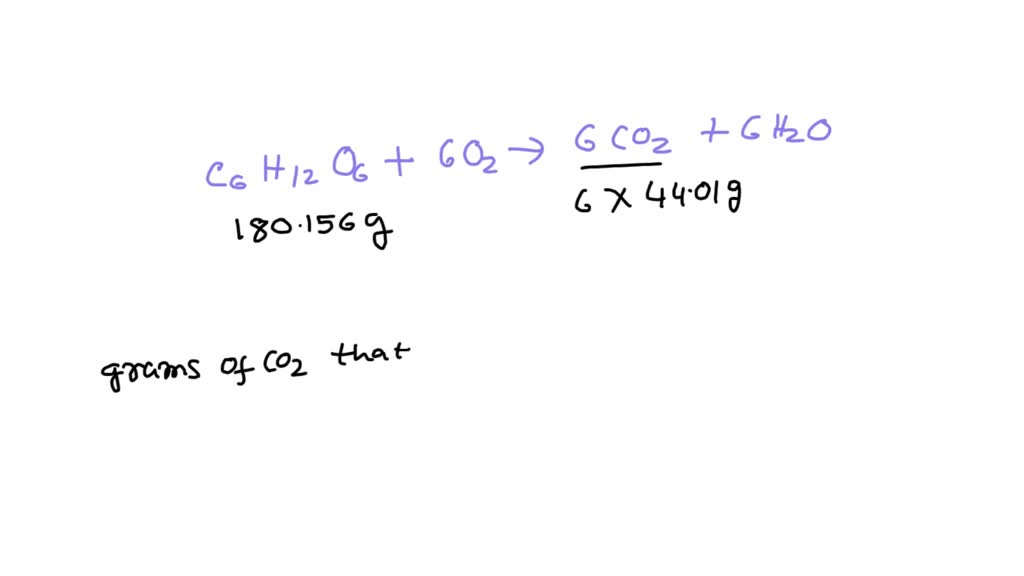 C6H12O6 + 6O2 → 6CO2 + 6H2O
180.156g 6 X 44.01g
grams of CO2 that